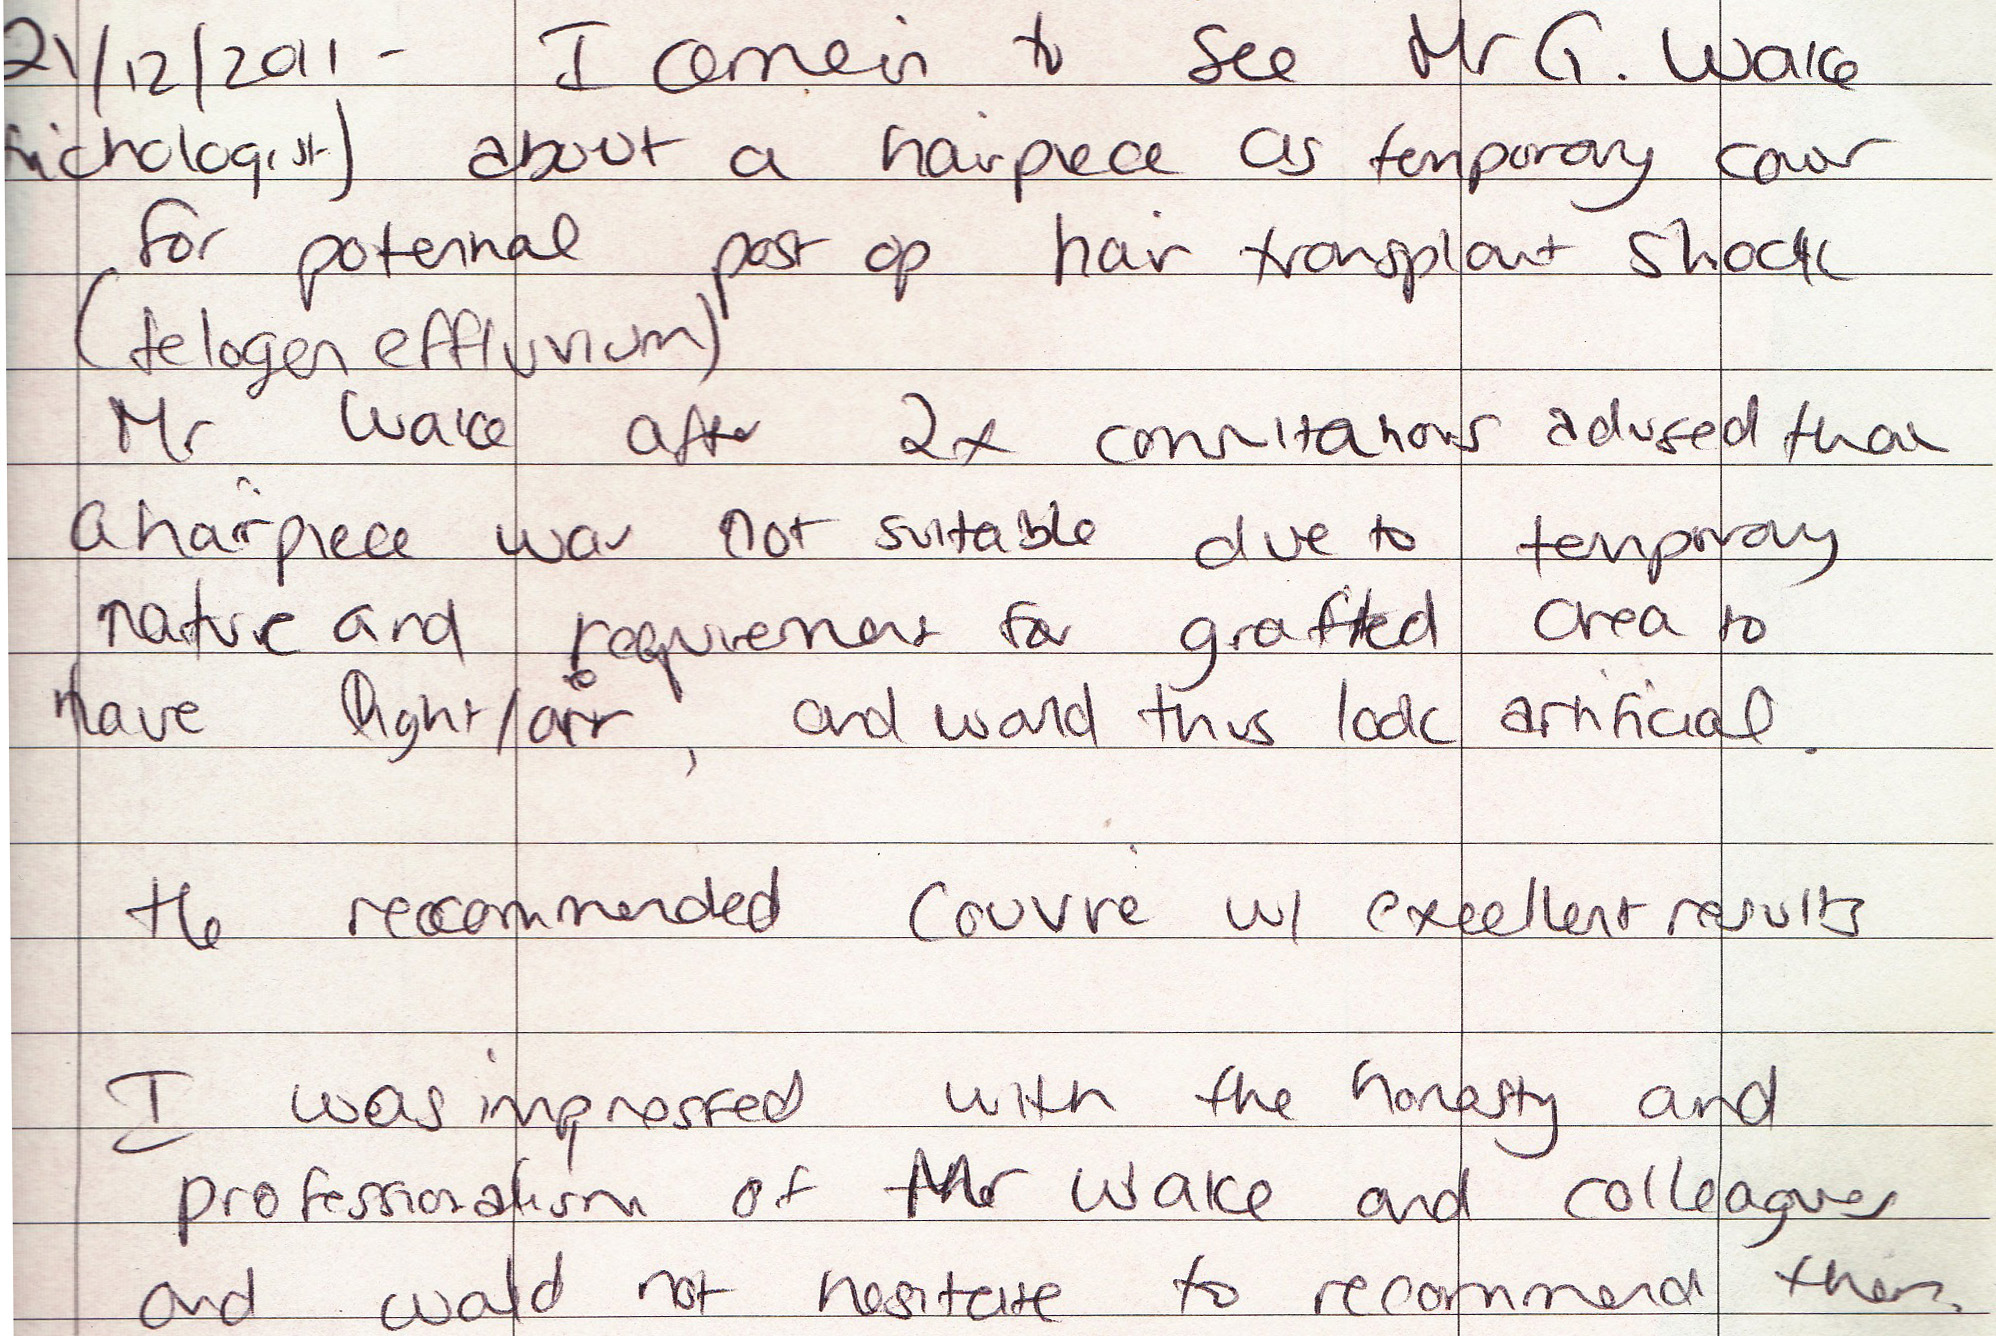 21/12/2011 - I came in to see Mr G. Wake
trichologist) about a hairpiece as temporary cover
for potential post op hair transplant shock
(telogen effluvium)
Mr Wake after 2x consultations advised that
a hairpiece was not suitable due to temporary
nature and requirement for grafted area to
have light/air, and would thus look artificial.
He recommended Couvré w/ excellent results
I was impressed with the honesty and
professionalism of Mr Wake and colleagues
and would not hesitate to recommend them.